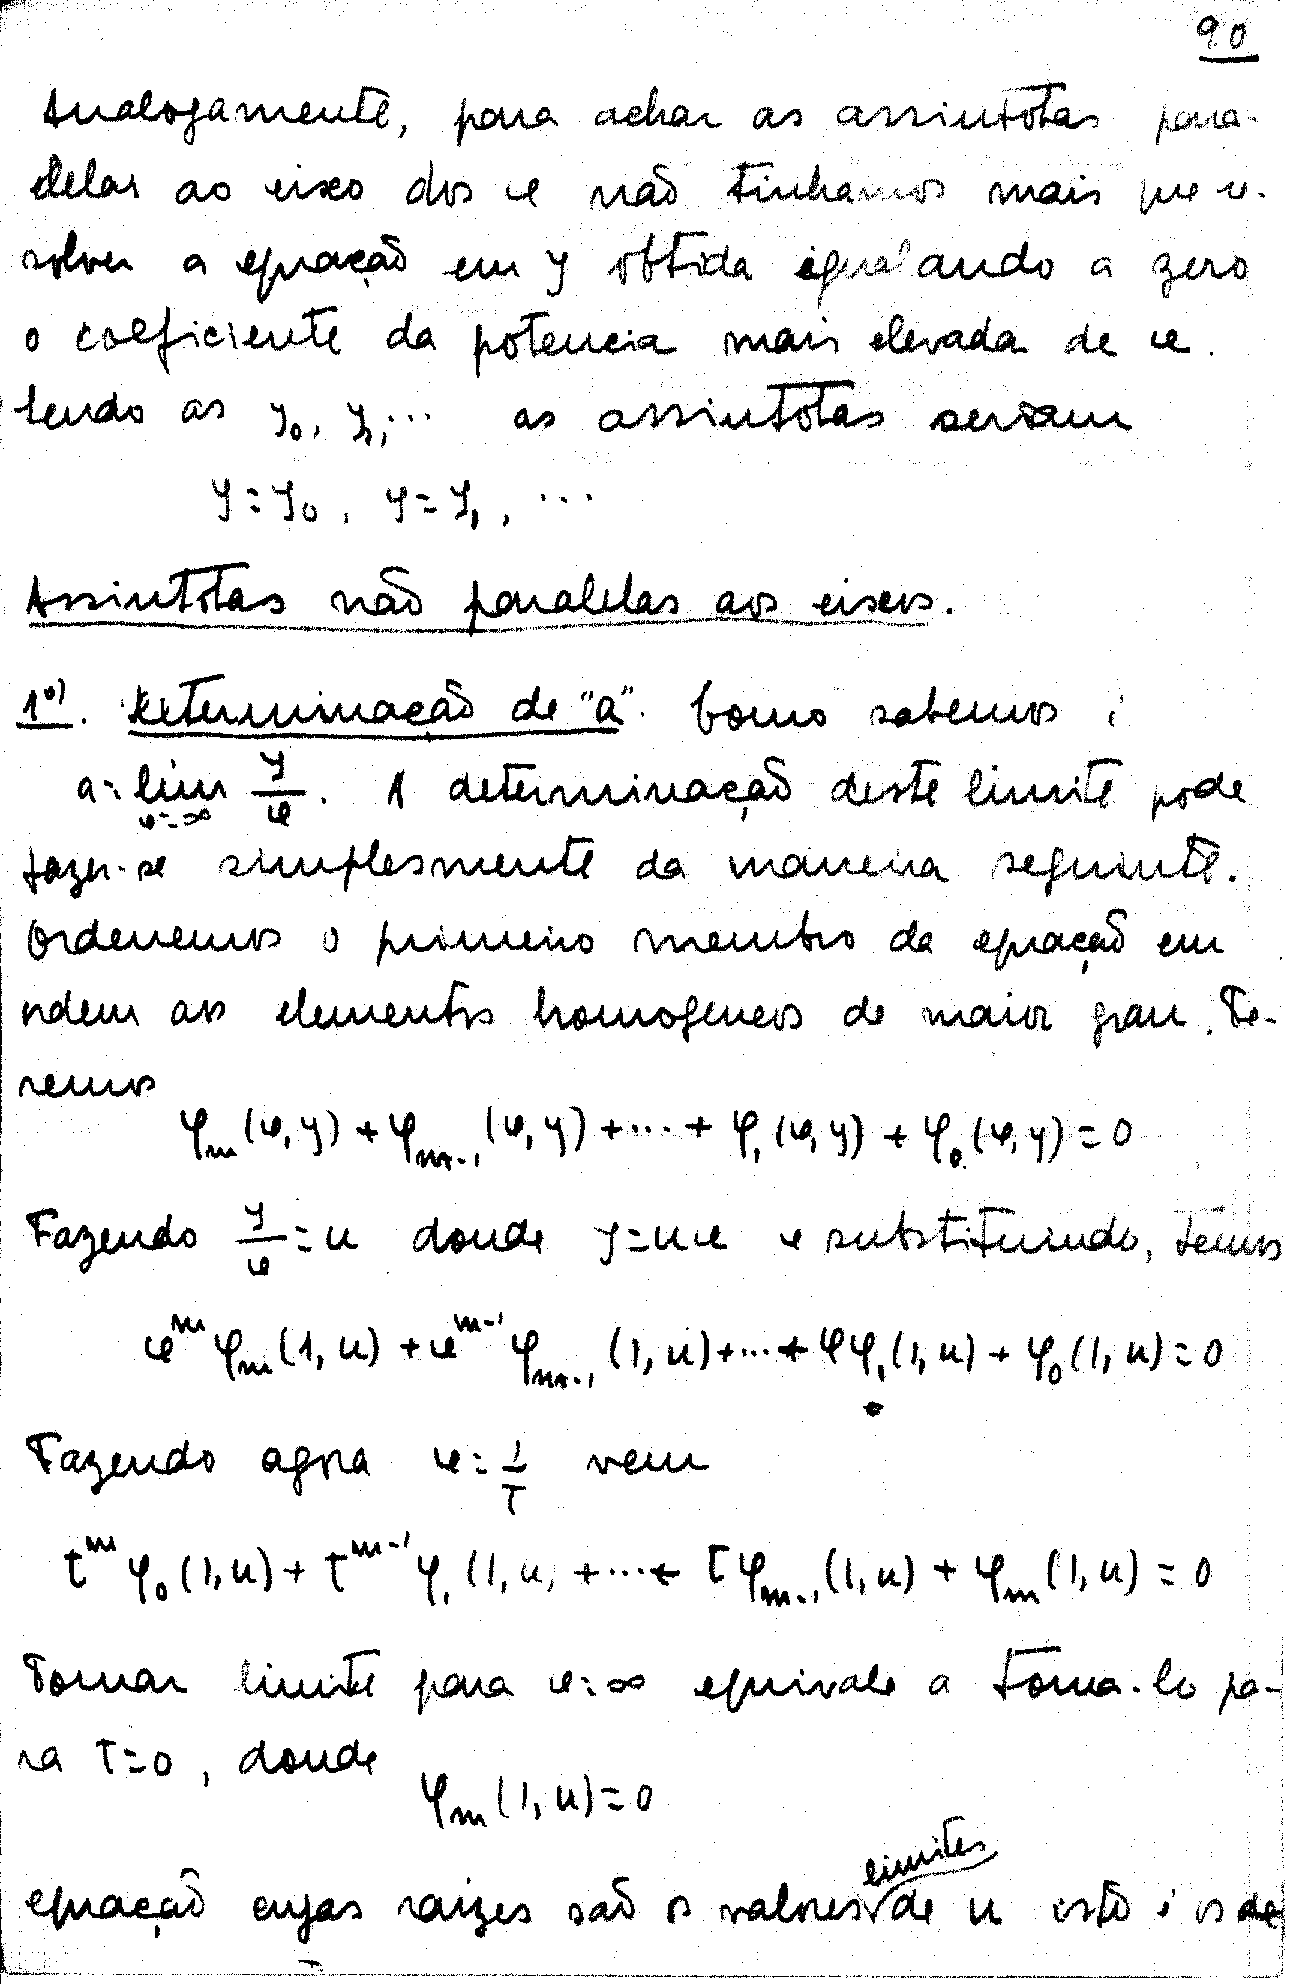 90
Analogamente, para achar as assintotas para-
lelas ao eixo dos x não tinhamos mais que re-
solver a equação em y obtida igualando a zero
o coeficiente da potencia mais elevada de x.
Sendo as y₀, y₁, ... as assintotas seriam
y = y₀, y = y₁, ...
Assintotas não paralelas aos eixos.
1º). Determinação de "a". Como sabemos é
a = lim y/x. A determinação deste limite pode
x=∞
fazer-se simplesmente da maneira seguinte.
Ordenemos o primeiro membro da equação em
ordem aos elementos homogeneos de maior grau. Te-
remos
φₘ(x,y) + φₘ₋₁(x,y) + ... + φ₁(x,y) + φ₀(x,y) = 0
Fazendo y/x = u donde y = ux e substituindo, temos
xᵐ φₘ(1,u) + xᵐ⁻¹ φₘ₋₁(1,u) + ... + xφ₁(1,u) + φ₀(1,u) = 0
Fazendo agora x = 1/t vem
tᵐ φ₀(1,u) + tᵐ⁻¹ φ₁(1,u) + ... + tφₘ₋₁(1,u) + φₘ(1,u) = 0
Tomar limite para x = ∞ equivale a toma-lo pa-
ra t = 0, donde
φₘ(1,u) = 0
equação cujas raizes são os valores limites de u isto é os de